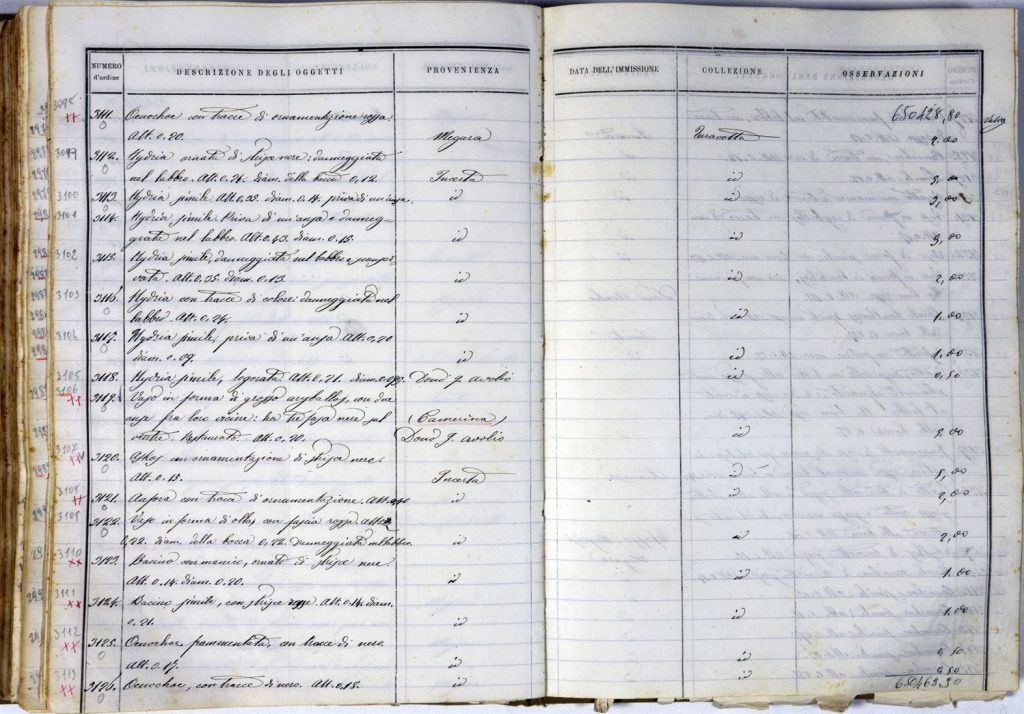 NUMERO d'ordine DESCRIZIONE DEGLI OGGETTI PROVENIENZA DATA DELL'IMMISSIONE COLLEZIONE OSSERVAZIONI
650428,80
3098
3111. Oenochoe con tracce di ornamentazione rossa.
Alt. 0.20. Megara Terracotte 2.00
3099
3112. Hydria ornata di strisce nere: danneggiata
nel labbro. Alt. 0.24. diam. della bocca 0.12. Incerta id 3,00
3100
3113. Hydria simile Alt. 0.35. diam. 0.14. priva di un'ansa. id id 3,00
3101
3114. Hydria simile. Priva di un'ansa e danneg-
giata nel labbro. Alt. 0.43. diam. 0.15. id id 3,00
3102
3115. Hydria simile, danneggiata nel labbro e
Alt. 0.35. diam. 0.13. id id 2,00
3103
3116. Hydria con tracce di colore: danneggiata nel
labbro Alt. 0.24. id id 1.00
3104
3117. Hydria simile, priva di un'ansa. Alt. 0,20
diam. 0.09. id id 1,00
3105
3118. Hydria simile, logorata. Alt. 0.21. diam. 0.09. Dono J. Avolio id 0,50
3106
3119. Vaso in forma di grosso aryballos, con due
anse fra loro vicine: ha tre fasce nere sul (Camerina)
ventre. Restaurato. Alt. 0.20. Dono J. Avolio id 8,00
3107
3120. con ornamentazione di strisce nere.
Alt. 0.15. Incerta id 5,00
3108
3121. Anfora con tracce di ornamentazione. Alt. id id 2,00
3109
3122. Vaso in forma di olla, con fascia rossa. Alt.
0,22. diam. della bocca 0.22. Danneggiata nel labbro. id id 2,00
3110
3123. Bacino con manico, ornato di strisce nere.
Alt. 0.14. diam. 0.20. id id 1.00
3111
3124. Bacino simile, con strisce rosse Alt. 0.14. diam.
0.21. id id 1.00
3112
3125. Oenochoe frammentata, con tracce di nero.
Alt. 0.17. id id 0,50
3113
3126. Oenochoe, con tracce di nero. Alt. 0.15. id id 0,50
650463,30